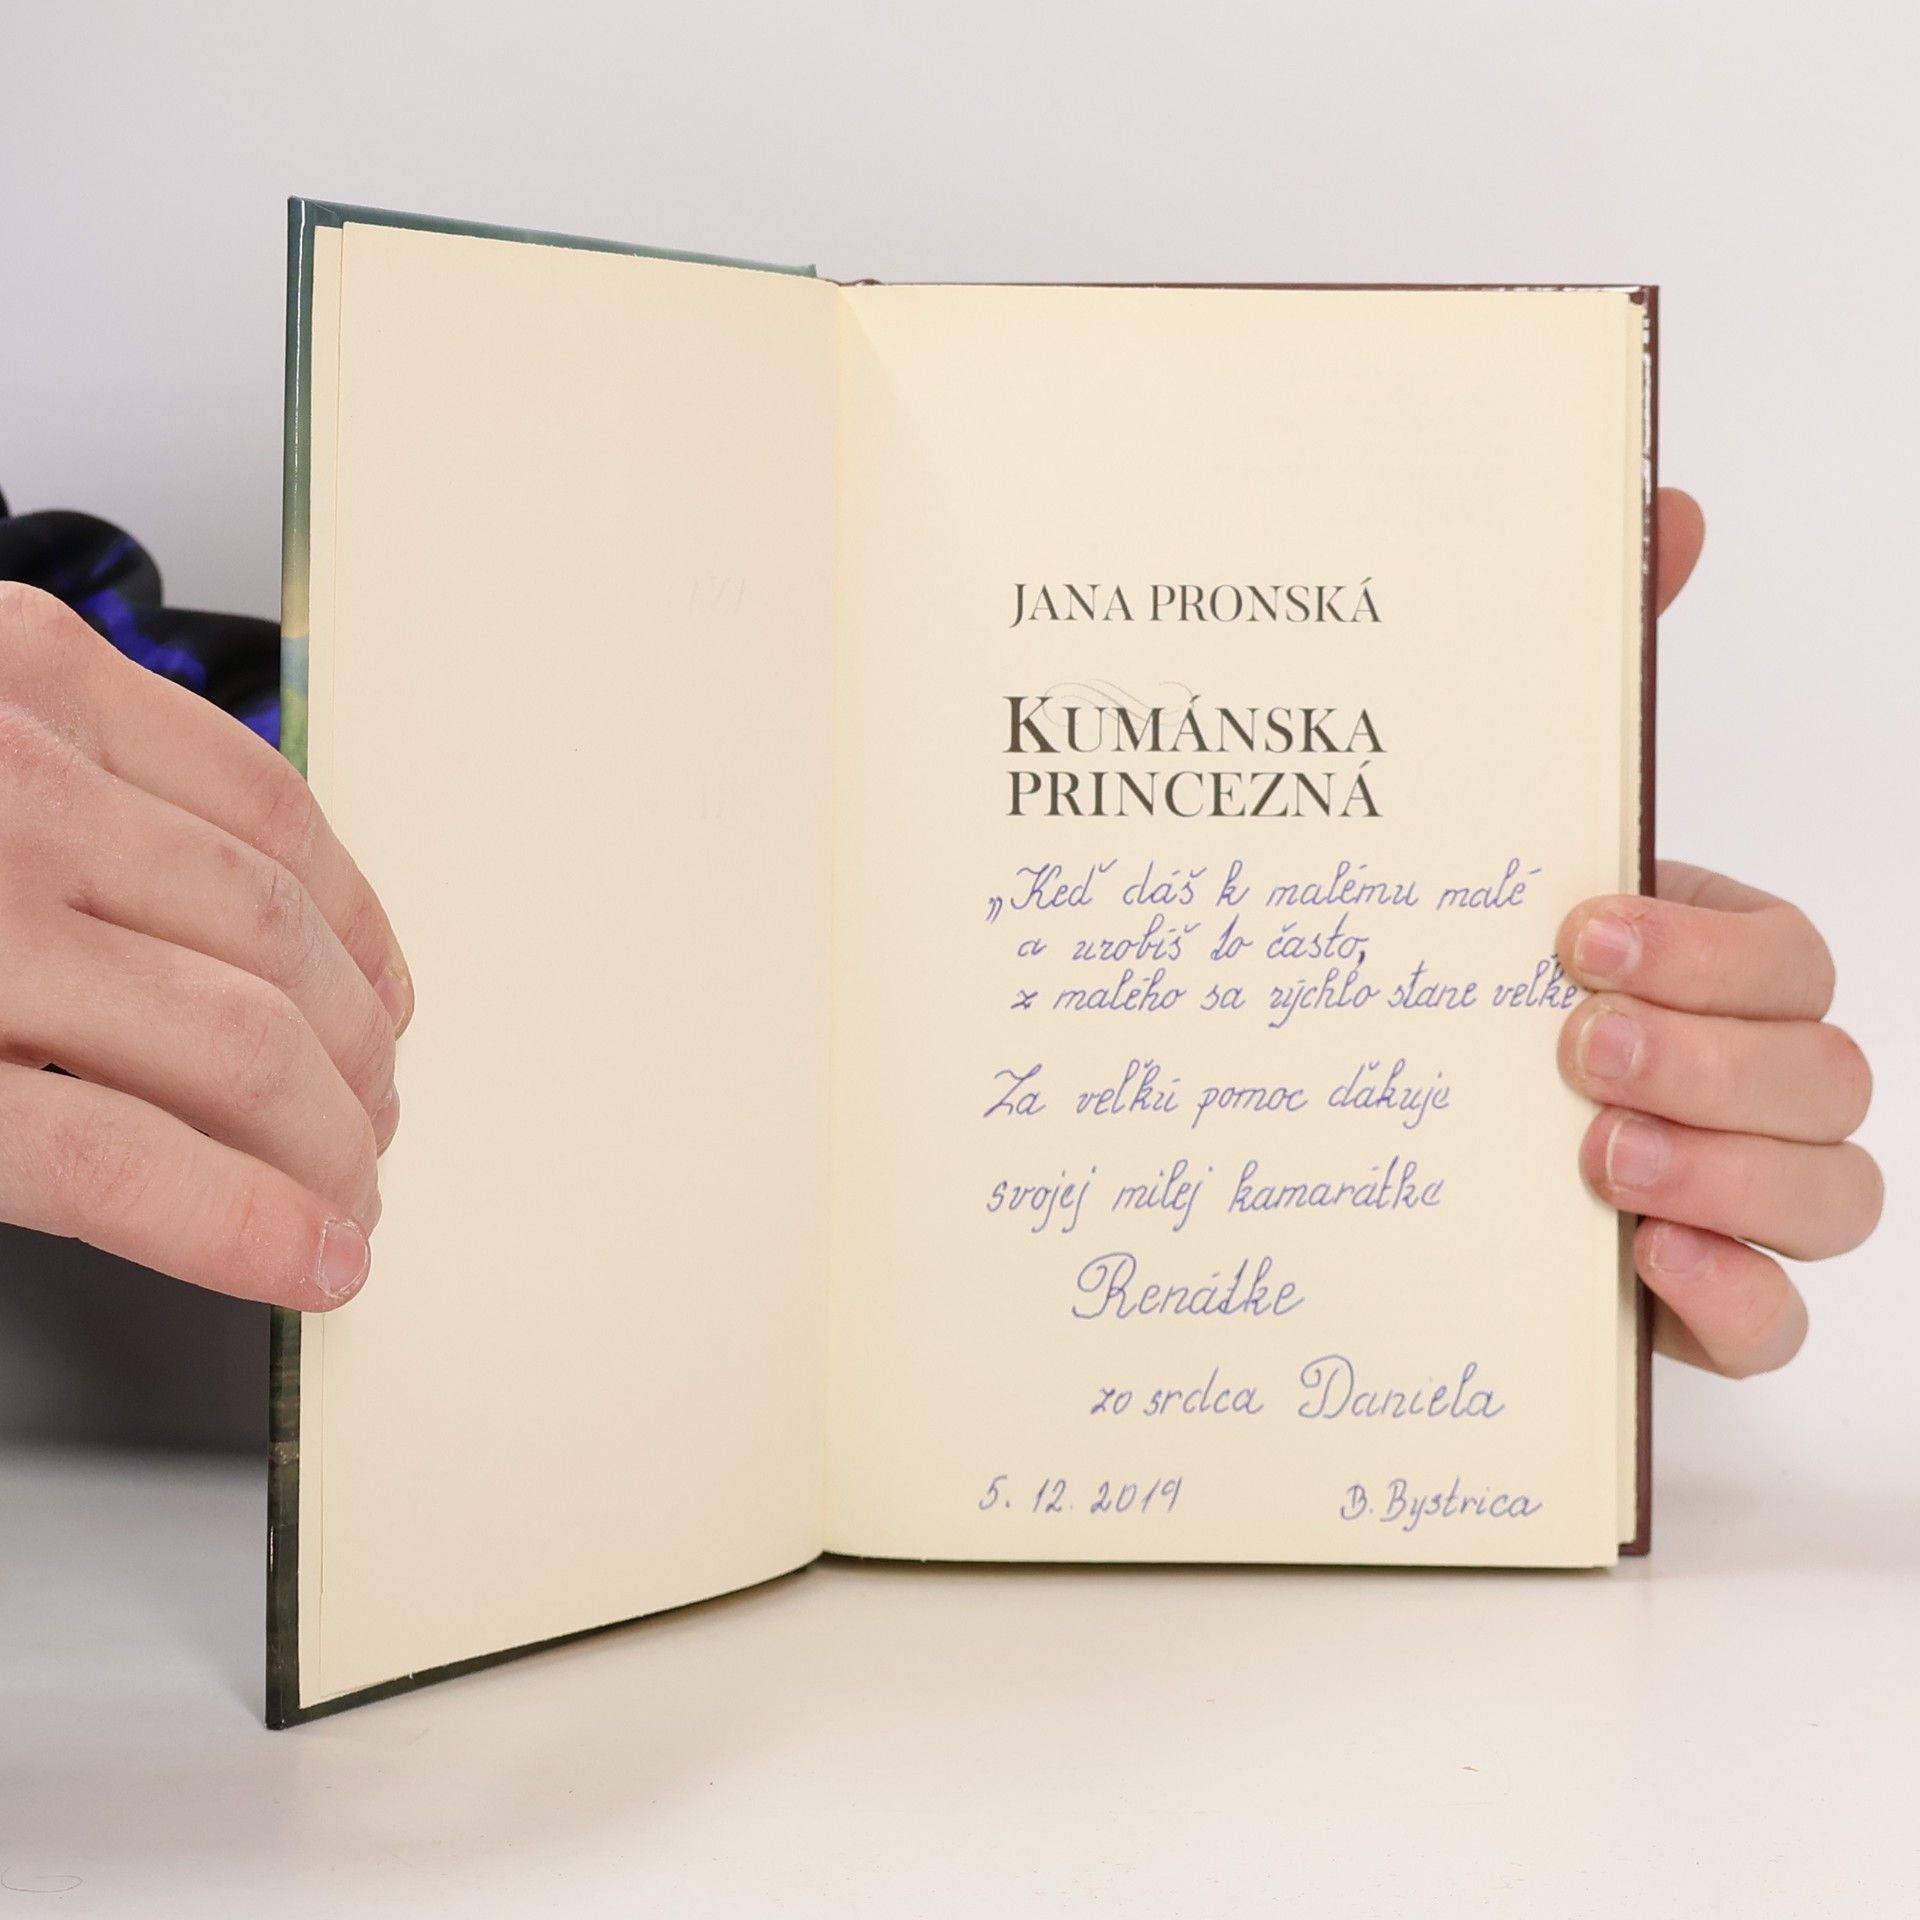 JANA PRONSKÁ
KUMÁNSKA
PRINCEZNÁ
„Keď dáš k malému malé
a urobíš to často,
z malého sa rýchlo stane veľké
Za veľkú pomoc ďakuje
svojej milej kamarátke
Renátke
zo srdca Daniela
5. 12. 2019 B. Bystrica